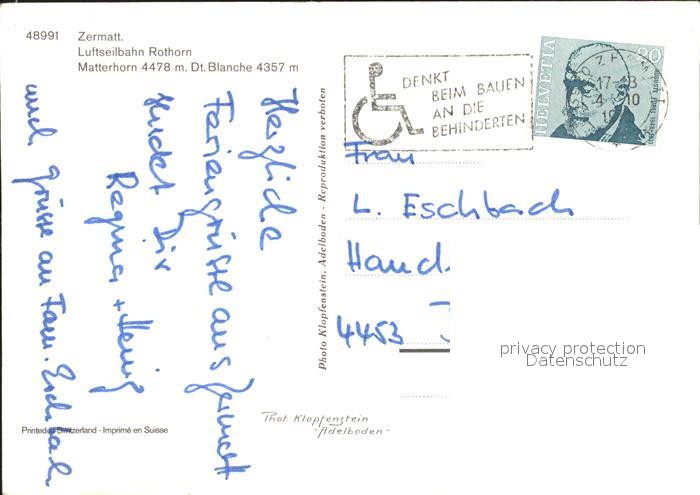 48991 Zermatt.
Luftseilbahn Rothorn
Matterhorn 4478 m. Dt. Blanche 4357 m
Herzliche
Feriengrüsse aus Zermatt
sendet Dir
Regina + Henig
und Grüsse an Fam. Eschbach
Printed in Switzerland - Imprimé en Suisse
Photo Klopfenstein, Adelboden - Reproduktion verboten
Phot. Klopfenstein
- Adelboden -
DENKT
BEIM BAUEN
AN DIE
BEHINDERTEN
HELVETIA
20
17-18
4. 10
19
Frau
L. Eschbach
Hand
4453
privacy protection
Datenschutz